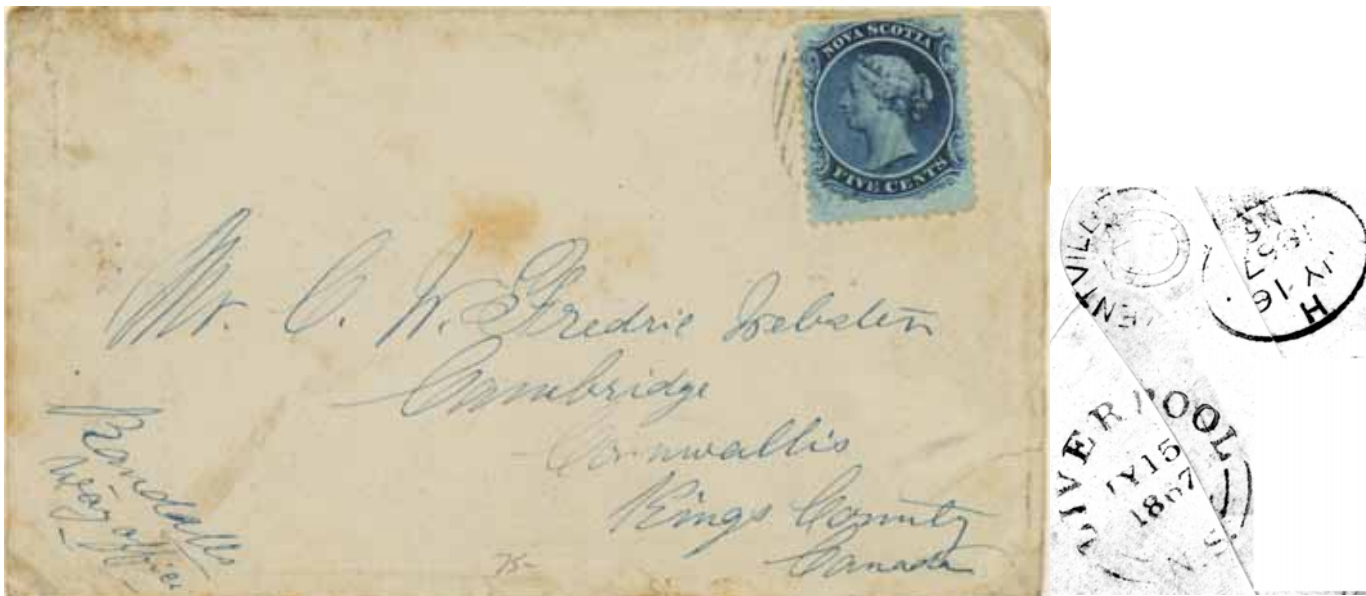 NOVA SCOTIA
FIVE CENTS
Mr. C. W. Fredric Webster
Cambridge
Cornwallis
Kings County
Canada
Randalls
Way office
75-
ENTVILLE
H
JY 16
1867
LIVERPOOL
JY 15
1867
N.S.